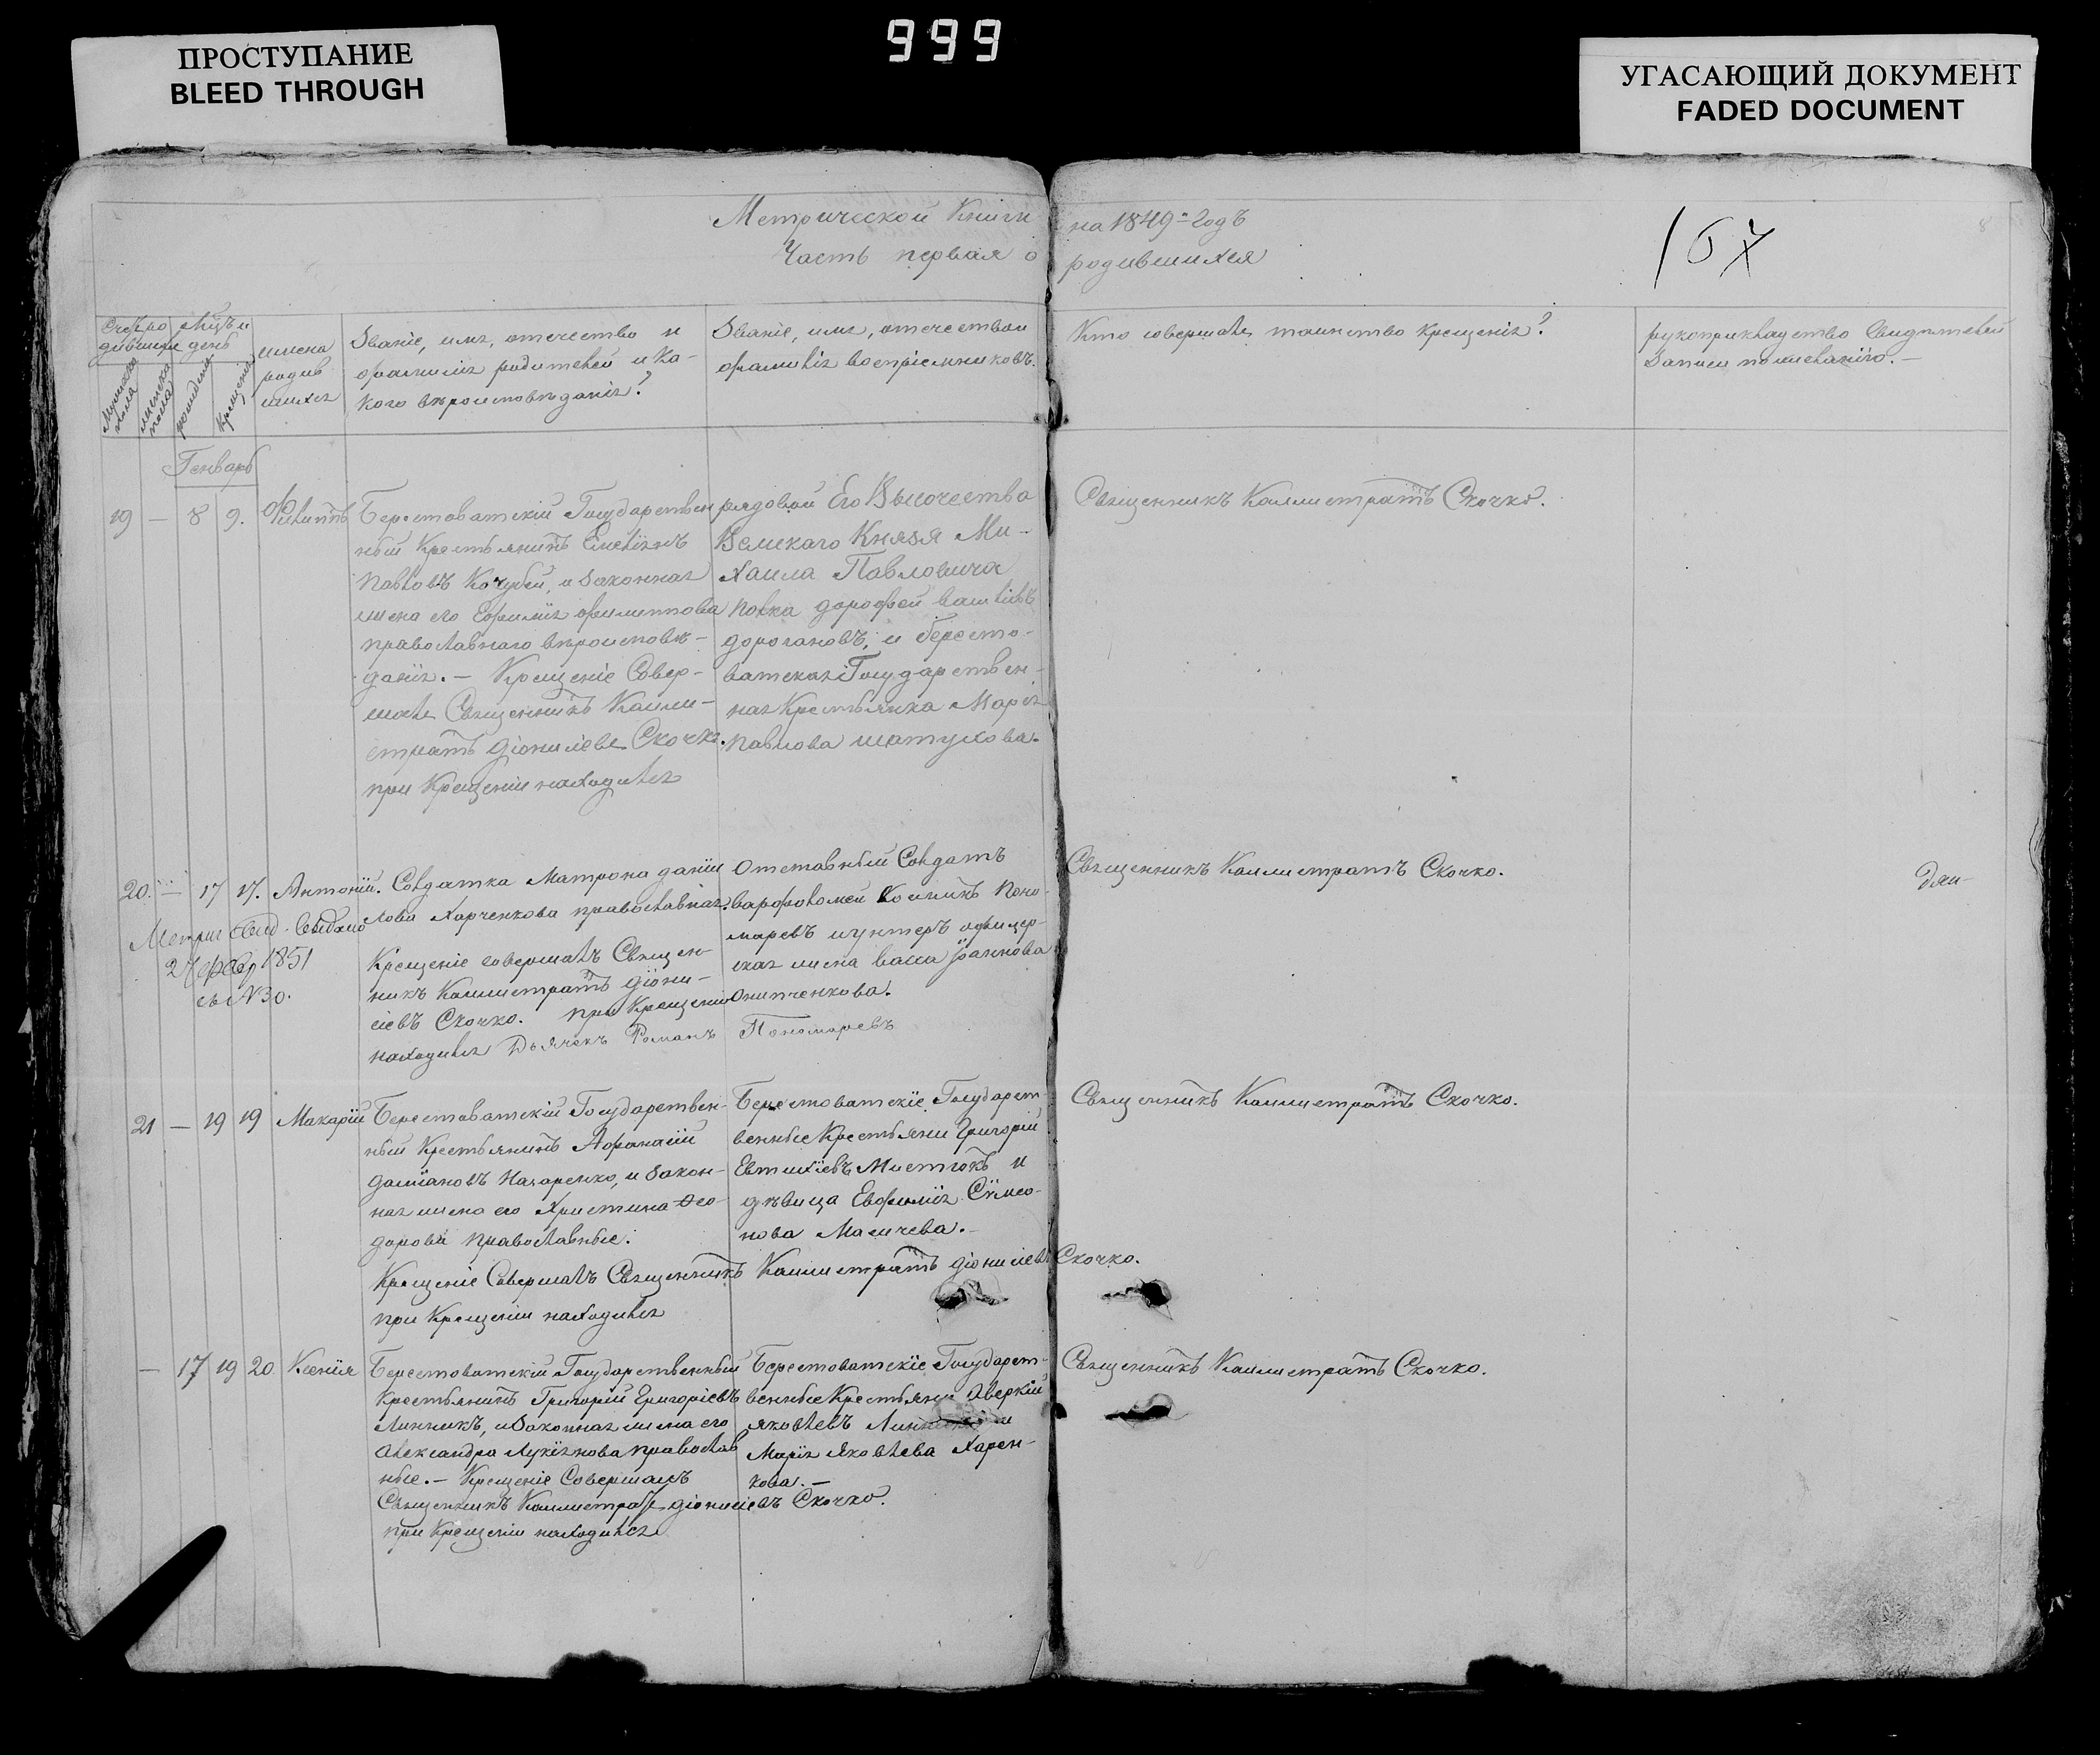 999
ПРОСТУПАНИЕ
BLEED THROUGH
УГАСАЮЩИЙ ДОКУМЕНТ
FADED DOCUMENT
Метрической Книги на 1849 Годъ
Часть первая о родившихся
167
8
Мѣсяцъ и день
рожденія
Крещенія
имена родившихся
Званіе, имя, отечество и
фамилія родителей и Ка-
кого вѣроисповѣданія?
Званіе, имя, отечество и
фамилія воспріемниковъ.
Кто совершалъ таинство крещенія?
рукоприкладство Свидѣтелей
записи по желанію.—
Генварь
19 — 8 9. Филиппъ
Берестоватскій Государствен
ный Крестьянинъ Емеліанъ
Павловъ Кочубей, и законная
жена его Ефимія Филиппова
православнаго вѣроисповѣ-
данія.— Крещеніе Совер-
шалъ Священникъ Калли-
стратъ Діонисіевъ Скочко.
при Крещеніи находился
рядовой Его Высочества
Великаго Князя Ми-
хаила Павловича
полка дорофей
дорогановъ, и бересто-
ватская Государствен-
ная Крестьянка Марія
Павлова шатухова.
Священникъ Каллистратъ Скочко.
20. — 17 17. Антоній.
Метрич Свид. выдано
27 февр 1851
№ 30.
Солдатка Матрона даніи
лова Харченкова православная.
Крещеніе совершалъ Священ-
никъ Каллистратъ діони-
сіевъ Скочко. при Крещеніи
находился Дьячекъ Романъ Пономаревъ
Отставный Солдатъ
варфоломей Козминъ Поно-
маревъ и унтеръ офицер-
ская жена васса Іоаннова
Онипченкова.
Священникъ Каллистратъ Скочко.
21 — 19 19 Макарій
Берестоватскій Государствен-
ный Крестьянинъ Афанасій
даміановъ Назаренко, и закон-
ная жена его Христина Ѳео-
дорова православные.
Крещеніе Совершалъ Священникъ Каллистратъ діонисіевъ Скочко.
при Крещеніи находился
Берестоватскіе Государст-
венные Крестьяни Григорій
Евтихіевъ Мистюкъ и
дѣвица Евфимія Сѵмео-
нова Масичева.—
Священникъ Каллистратъ Скочко.
— 17 19 20 Ксенія
Берестоватскій Государственный
Крестьянинъ Григорій Григоріевъ
Линникъ, и законная жена его
Александра Лукіанова православ
ные.— Крещеніе Совершалъ
Священникъ Каллистратъ діонисіевъ Скочко.
при Крещеніи находился
Берестоватскіе Государст-
венные Крестьяни Аверкій
Яковлевъ и
Марія Яковлева Харен-
кова.—
Священникъ Каллистратъ Скочко.